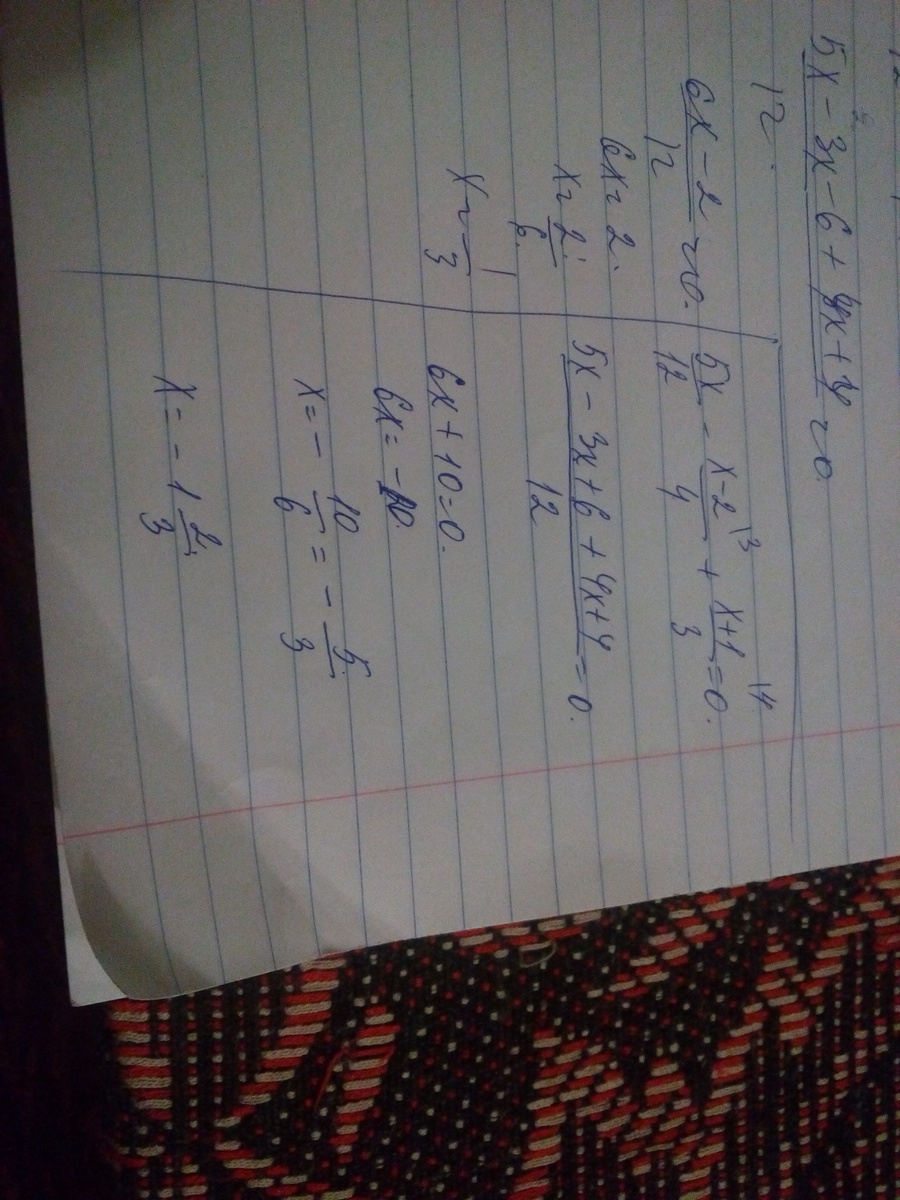 5x - 3x - 6 + 4x + 4 = 0.
12.
6x - 2 = 0.
12
6x = 2.
x = 2/6.
x = 1/3
5x/12 - x-2/4 \3 + x+1/3 \4 = 0.
5x - 3x + 6 + 4x + 4 = 0.
12
6x + 10 = 0.
6x = -10.
x = - 10/6 = - 5/3
x = - 1 2/3.